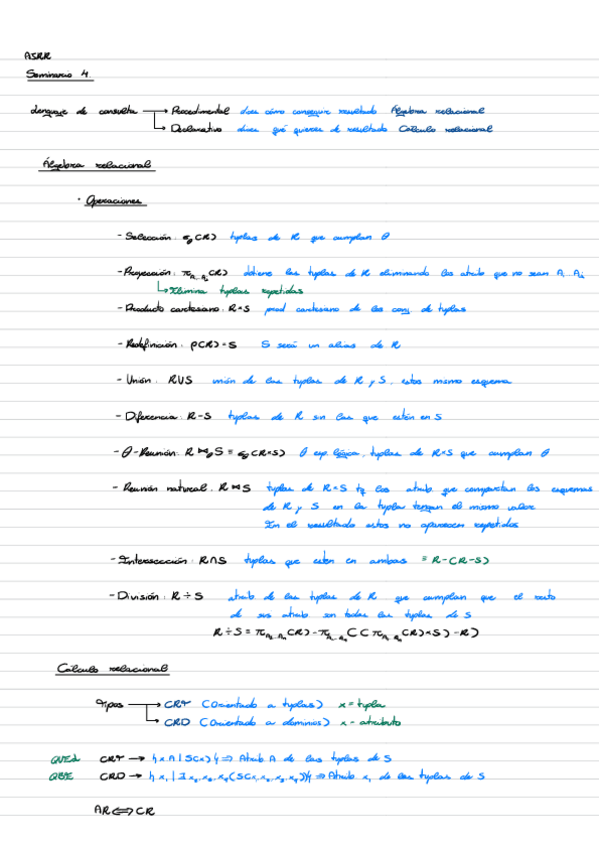 ASRR
Seminario 4
Lenguaje de consulta → Procedimental dices cómo conseguir resultado Álgebra relacional
↳ Declarativo dices qué quieres de resultado Cálculo relacional
Álgebra relacional
· Operaciones
- Selección: σθ(R) tuplas de R que cumplan θ
- Proyección: πA₁..Aₙ(R) obtiene las tuplas de R eliminando los atrib que no sean A₁ Aₙ
↳ Elimina tuplas repetidas
- Producto cartesiano: R×S prod cartesiano de los conj. de tuplas
- Redefinición: ρ(R)=S S será un alias de R
- Unión: R∪S unión de las tuplas de R y S, estos mismo esquema
- Diferencia: R-S tuplas de R sin las que estén en S
- θ-Reunión: R⋈θS ≡ σθ(R×S) θ exp. lógica, tuplas de R×S que cumplan θ
- Reunión natural: R⋈S tuplas de R×S tq los atrib que compartan los esquemas
de R y S en la tupla tengan el mismo valor
En el resultado estos no aparecen repetidos
- Intersección: R∩S tuplas que estén en ambas ≡ R-(R-S)
- División: R÷S atrib de las tuplas de R que cumplan que el resto
de sus atrib son todas las tuplas de S
R÷S = πA₁..Aₙ(R) - πA₁..Aₙ((πA₁..Aₙ(R)×S)-R)
Cálculo relacional
Tipos → CRT (Orientado a tuplas) x=tupla
↳ CRD (Orientado a dominios) x=atributo
QUEL CRT → {x.A | S(x)} ⇒ Atrib A de las tuplas de S
QBE CRD → {x₁ | ∃x₂,x₃,x₄(S(x₁,x₂,x₃,x₄))} ⇒ Atrib x₁ de las tuplas de S
AR ⟺ CR